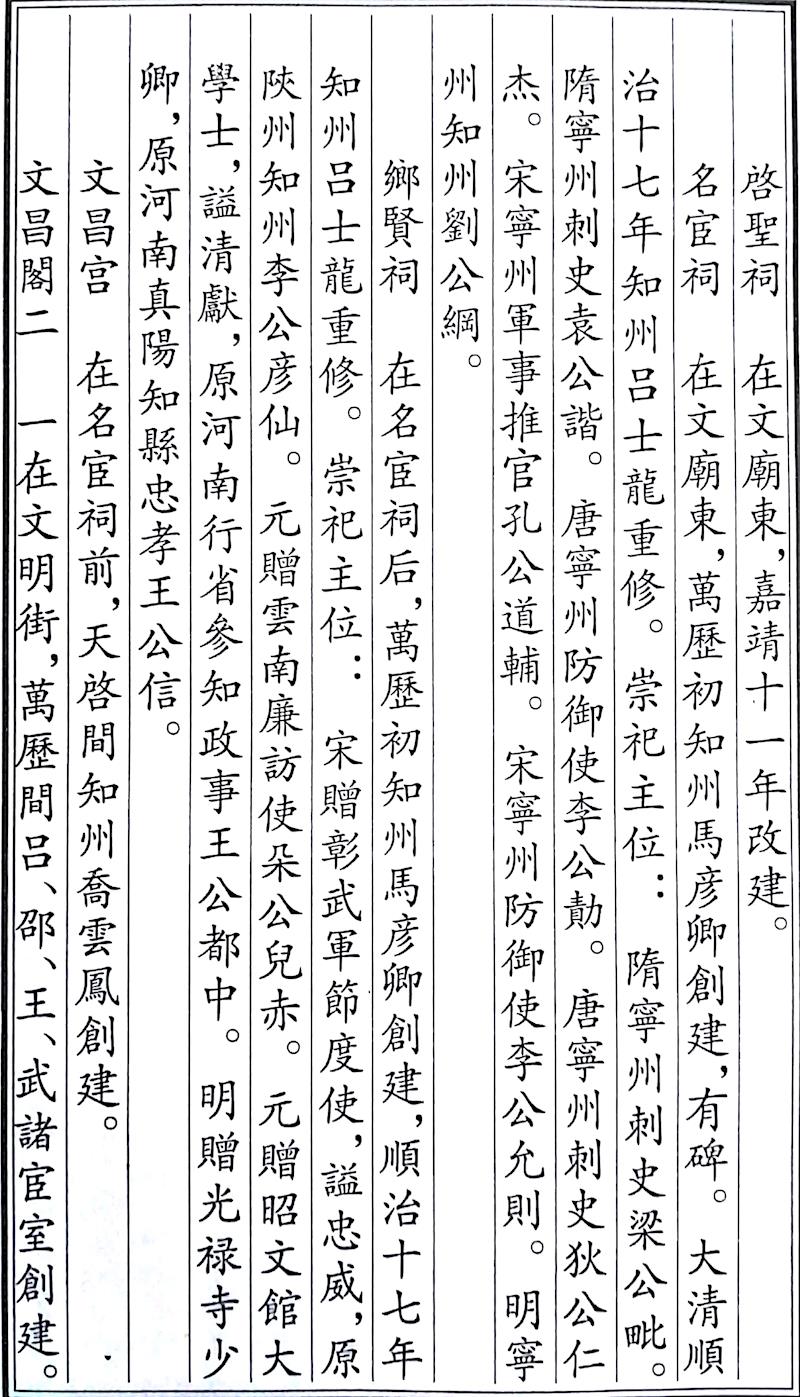 啓聖祠　在文廟東，嘉靖十一年改建。
名宦祠　在文廟東，萬歷初知州馬彦卿創建，有碑。大清順
治十七年知州吕士龍重修。崇祀主位：隋寧州刺史梁公毗。
隋寧州刺史袁公諧。唐寧州防御使李公勣。唐寧州刺史狄公仁
杰。宋寧州軍事推官孔公道輔。宋寧州防御使李公允則。明寧
州知州劉公綱。
鄉賢祠　在名宦祠后，萬歷初知州馬彦卿創建，順治十七年
知州吕士龍重修。崇祀主位：宋贈彰武軍節度使，謚忠威，原
陝州知州李公彦仙。元贈雲南廉訪使朵公兒赤。元贈昭文館大
學士，謚清獻，原河南行省參知政事王公都中。明贈光禄寺少
卿，原河南真陽知縣忠孝王公信。
文昌宫　在名宦祠前，天啓間知州喬雲鳳創建。
文昌閣二　一在文明街，萬歷間吕、邵、王、武諸宦室創建。